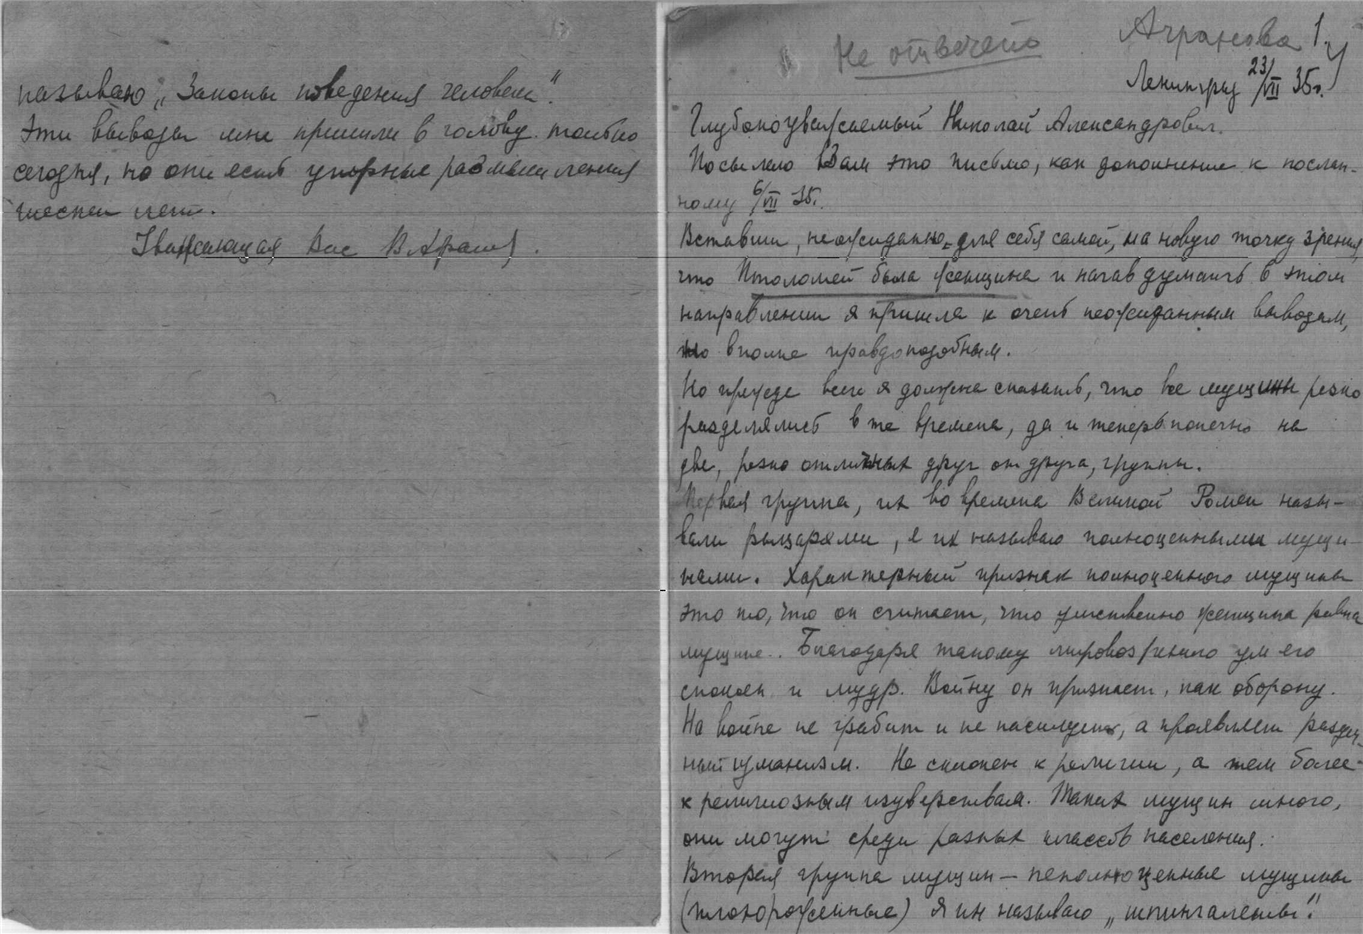 называю „Законы поведения человека".
Эти выводы мне пришли в голову только
сегодня, но они есть упорные размышления
нескол лет.
Уважающая Вас
Не отвечено
Агранова 1
Ленинград 23/VII 35г.
Глубокоуважаемый Николай Александрович.
Посылаю Вам это письмо, как дополнение к послан-
ному 6/VII 35.
Вставши, неожиданно для себя самой, на новую точку зрения,
что Птоломей была женщина и начав думать в этом
направлении я пришла к очень неожиданным выводам,
но вполне правдоподобным.
Но прежде всего я должна сказать, что все мущины резко
разделялись в те времена, да и теперь конечно на
две, резко отличных друг от друга, группы.
Первая группа, их во времена Великой Ромеи назы-
вали рыцарями, я их называю полноценными мущи-
нами. Характерный признак полноценного мущины
это то, что он считает, что умственно женщина равна
мущине. Благодаря такому мировозрению ум его
спокоен и мудр. Войну он признает, как оборону.
На войне не грабит и не насилует, а проявляет разум-
ный гуманизм. Не склонен к религии, а тем более-
к религиозным изуверствам. Таких мущин много,
они могут среди разных классов населения.
Вторая группа мущин — неполноценные мущины
(плохорожденные) я их называю „шпингалеты".